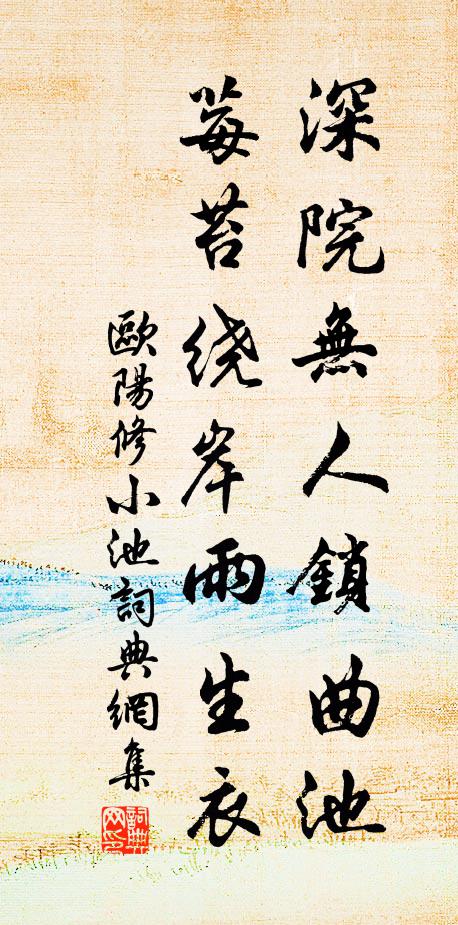 深院無人鎖曲池
莓苔绕岸雨生衣
歐陽修小池詞典網集
詞典網印